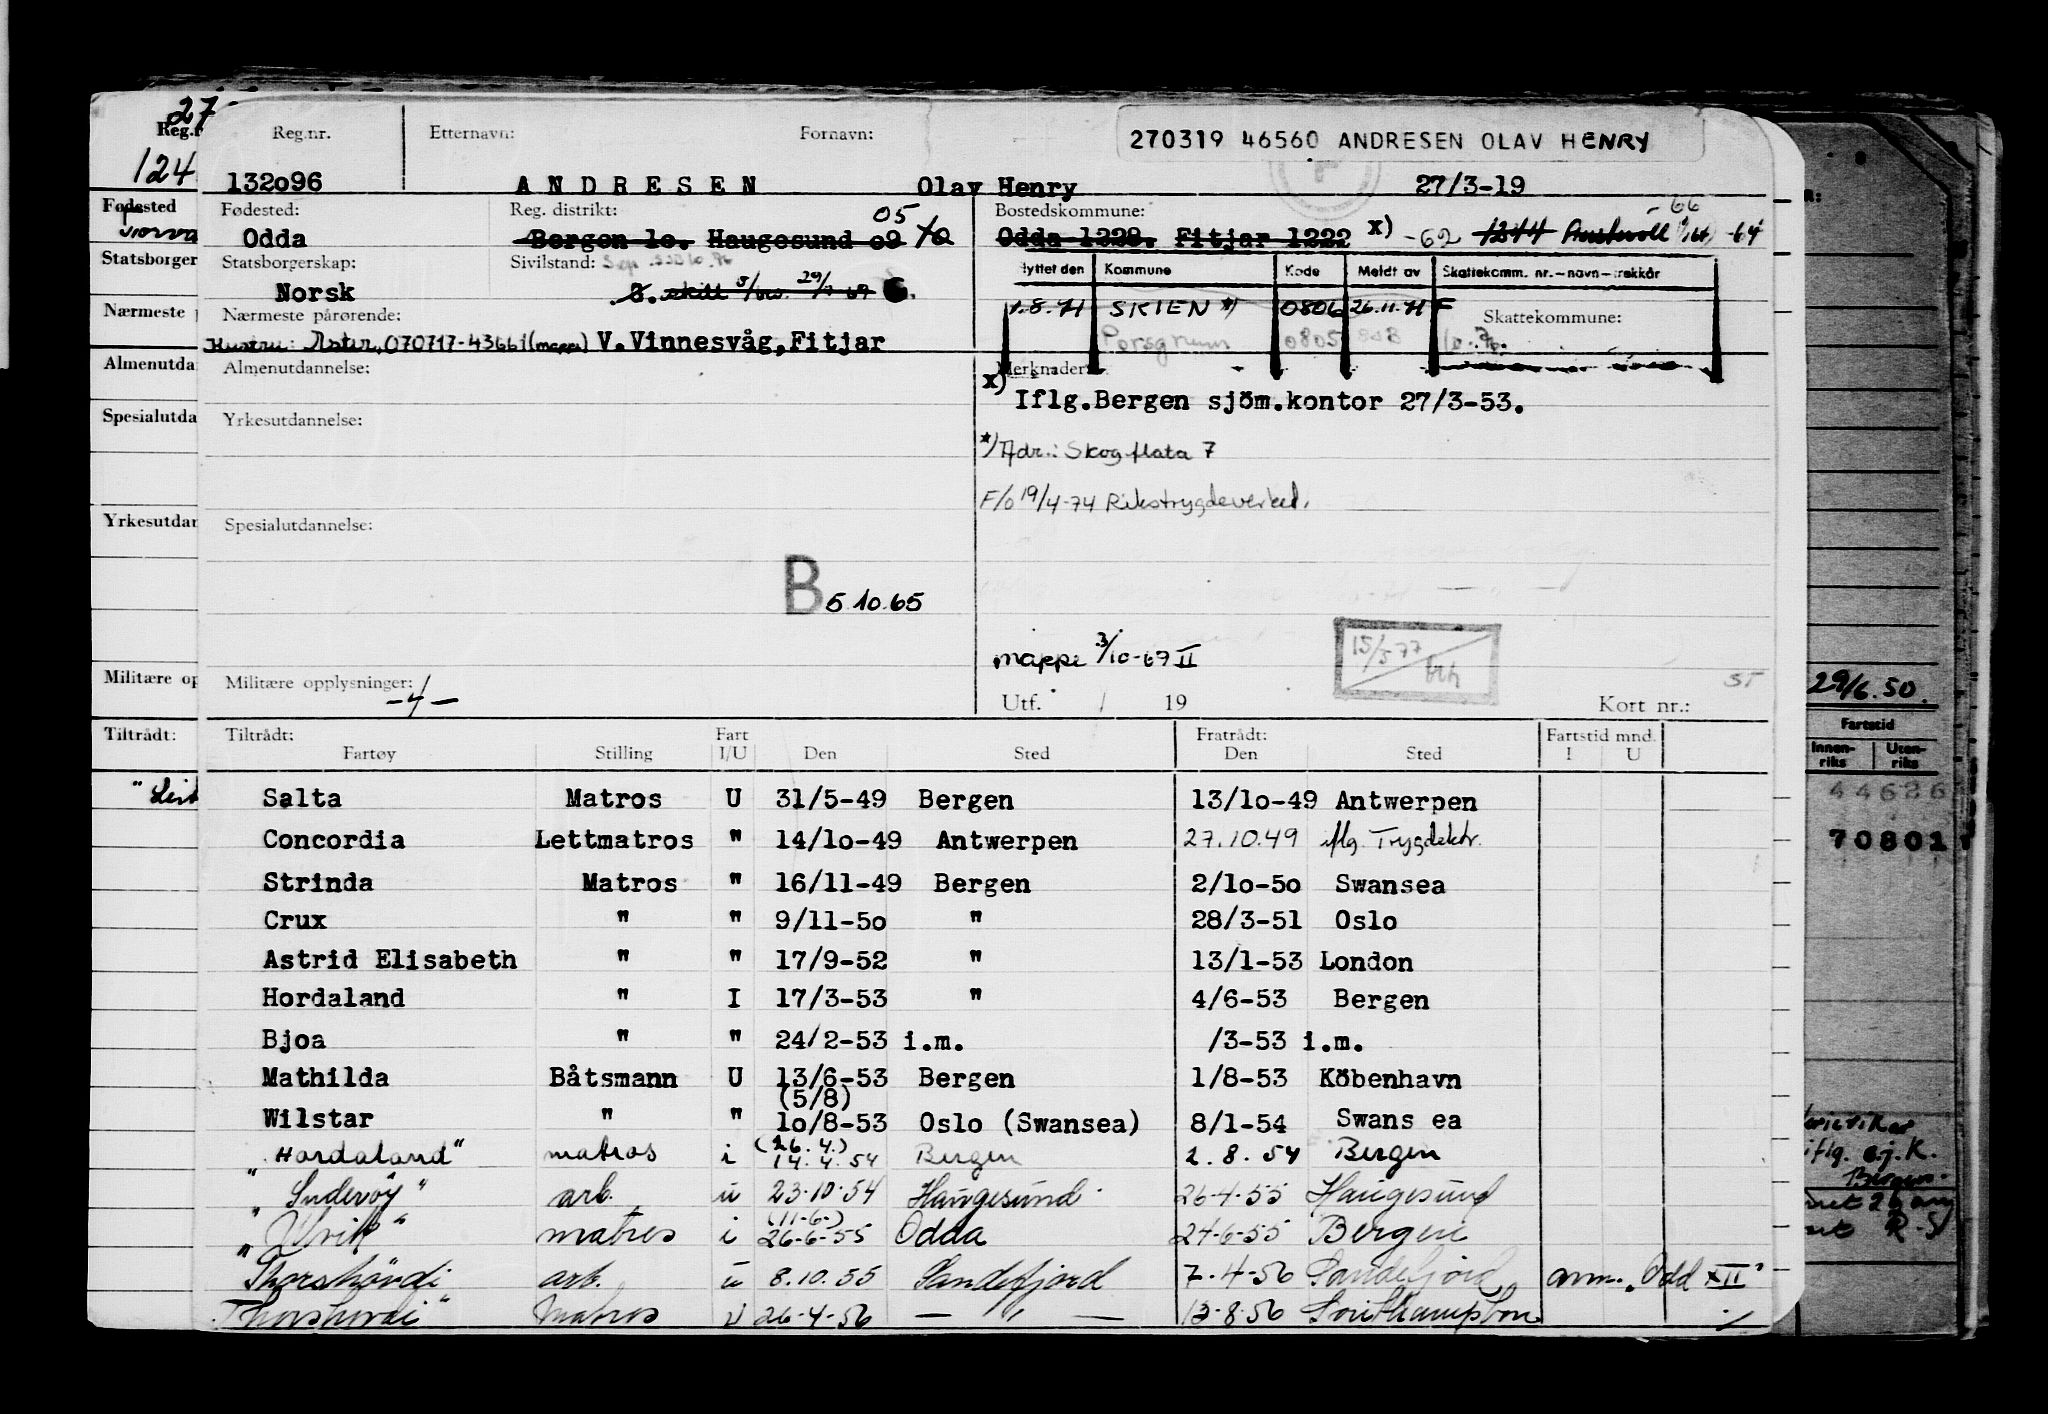 27
Reg.nr.
Etternavn:
Fornavn:
270319 46560 ANDRESEN OLAV HENRY
124
132o96
A N D R E S E N
Olav Henry
27/3-19
Fødested
Fødested:
Reg. distrikt:
05
Bostedskommune:
66
Odda
Bergen lo. Haugesund o9
Odda 1228. Fitjar 1222 x) -62 1244 Austevoll -64
Statsborger
Statsborgerskap:
Sivilstand:
Flyttet den Kommune Kode Meldt av Skattekomm. nr.-navn-trekkår
Norsk
G. skilt
1.8.71 SKIEN *) 0806 26.11.71 F
Nærmeste
Nærmeste pårørende:
Skattekommune:
Hustru: Aster, 070717-43661 (mappe) V.Vinnesvåg, Fitjar
Porsgrunn 0805
Almenutda
Almenutdannelse:
Merknader:
x) Iflg.Bergen sjöm.kontor 27/3-53.
Spesialutda
Yrkesutdannelse:
*) Adr.: Skogflata 7
F/o 19/4-74 Rikstrygdeverket.
Yrkesutdan
Spesialutdannelse:
B 5.10.65
mappe 3/10-69 II
15/5 77
Militære op
Militære opplysninger:
ST
Utf. / 19
Kort nr.:
29/6.50.
Tiltrådt:
Tiltrådt:
Fart
Fratrådt:
Fartstid mnd.
Fartstid
Fartøy Stilling I/U Den Sted Den Sted I U
Innen-riks Uten-riks
Salta Matros U 31/5-49 Bergen 13/lo-49 Antwerpen
44626
Concordia Lettmatros " 14/lo-49 Antwerpen 27.10.49 iflg. Trygdektr.
70801
Strinda Matros " 16/11-49 Bergen 2/lo-5o Swansea
Crux " " 9/11-5o " 28/3-51 Oslo
Astrid Elisabeth " " 17/9-52 " 13/1-53 London
Hordaland " I 17/3-53 " 4/6-53 Bergen
Bjoa " " 24/2-53 i.m. /3-53 i.m.
Mathilda Båtsmann U 13/6-53 Bergen 1/8-53 Köbenhavn
(5/8)
Wilstar " " lo/8-53 Oslo (Swansea) 8/1-54 Swans ea
(26.4.)
"Hordaland" matros i 14.4.54 Bergen 2.8.54 Bergen
iflg. sj.k.
Bergen.
"Suderöy" arb. u 23.10.54 Haugesund 26-4-55 Haugesund
(11-6.)
"Ulvik" matros i 26-6-55 Odda 24-6-55 Bergen
Thorshövdi arb. u 8.10.55 Sandefjord 7.4-56 Sandefjord anm. "Odd XII"
Thorshovdi" Matros u 26-4-56 — " — 13-8-56 Southampton